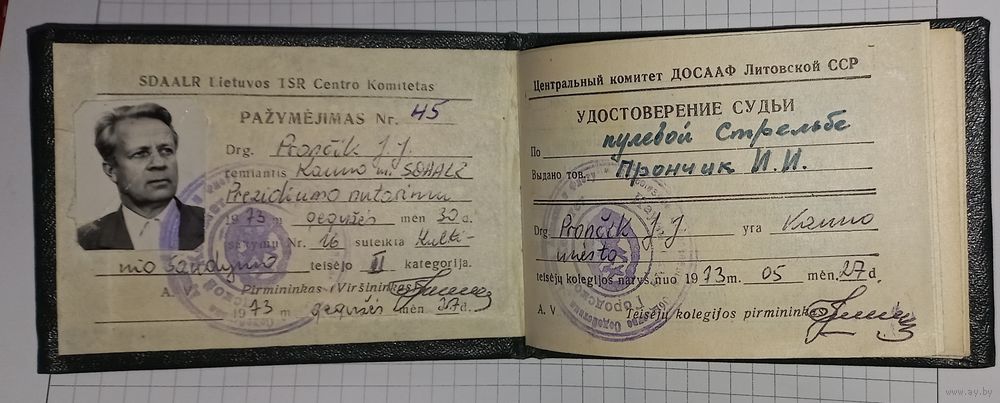 SDAALR Lietuvos TSR Centro Komitetas
PAŽYMĖJIMAS Nr. 45
Drg. Prončik J. J.
remiantis Kauno m. SDAALR
Prezidiumo nutarimu
1973 m gegužės mėn 30 d.
įsakymu Nr. 16 suteikta Kulki-
nio šaudymo teisėjo II kategorija.
A. V. Pirmininkas (Viršininkas)
1973 m gegužės mėn 27 d.
Центральный комитет ДОСААФ Литовской ССР
УДОСТОВЕРЕНИЕ СУДЬИ
По пулевой Стрельбе
Выдано тов. Прончик И. И.
Drg Prončik J. J. yra Kauno
miesto
teisėjų kolegijos narys nuo 1973 m. 05 mėn. 27 d.
A. V Teisėjų kolegijos pirmininkas
www.ay.by